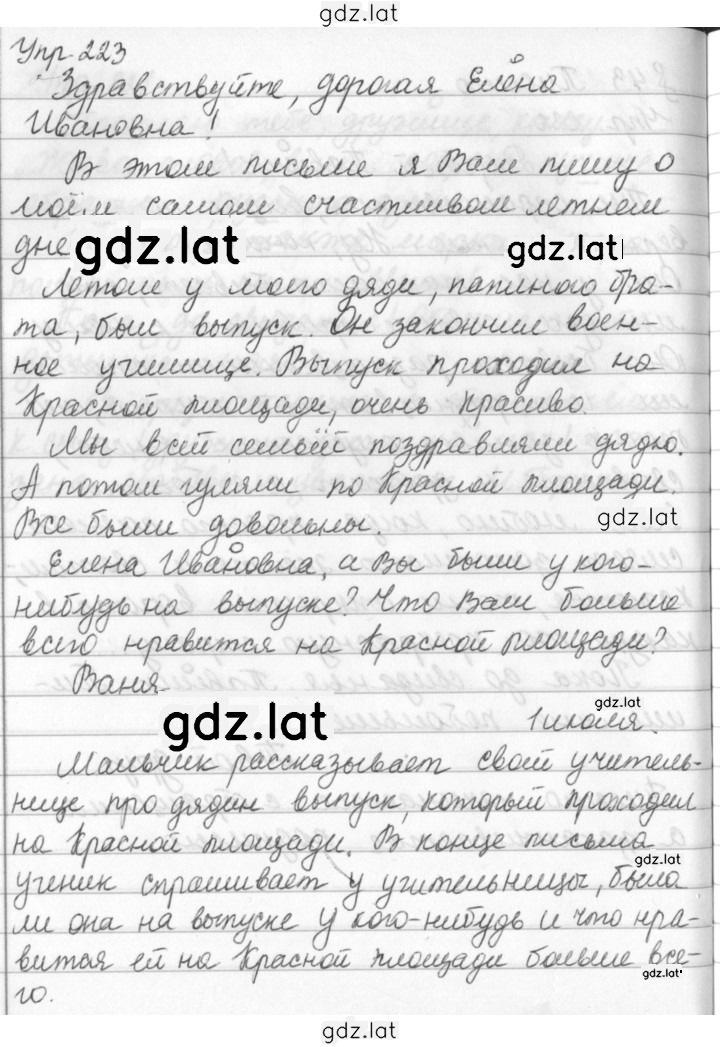 gdz.lat
Упр 223
Здравствуйте, дорогая Елена
Ивановна!
В этом письме я Вам пишу о
моём самом счастливом летнем
дне
gdz.lat
gdz.lat
Летом у моего дяди, папиного бра-
та, был выпуск. Он закончил воен-
ное училище. Выпуск проходил на
Красной площади, очень красиво.
Мы всей семьёй поздравляли дядю.
А потом гуляли по Красной площади.
Все были довольны.
gdz.lat
Елена Ивановна, а Вы были у кого-
нибудь на выпуске? Что Вам больше
всего нравится на Красной площади?
Ваня
gdz.lat
1 июля.
gdz.lat
Мальчик рассказывает своей учитель-
нице про дядин выпуск, который проходил
на Красной площади. В конце письма
gdz.lat
ученик спрашивает у учительницы, была
ли она на выпуске у кого-нибудь и что нра-
вится ей на Красной площади больше все-
gdz.lat
го.
gdz.lat